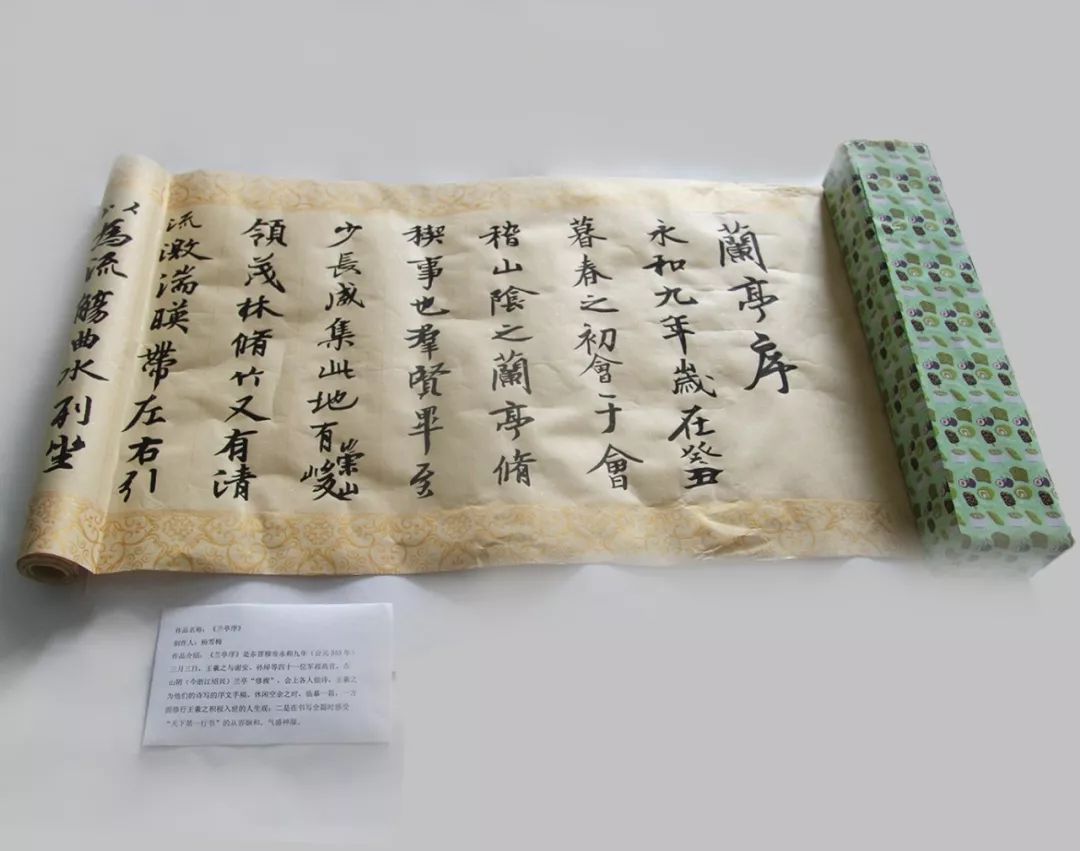 蘭亭序
永和九年歲在癸丑
暮春之初會于會
稽山陰之蘭亭脩
稧事也羣賢畢至
少長咸集此地有崇山峻
領茂林脩竹又有清
流激湍暎帶左右引
以爲流觴曲水列坐
作品名称：《兰亭序》
制作人：杨
作品介绍：《兰亭序》是东晋穆帝永和九年（公元353年）
三月三日，王羲之与谢安、孙绰等四十一位军政高官，在
山阴（今浙江绍兴）兰亭“修禊”，会上各人做诗，王羲之
为他们的诗写的序文手稿。休闲空余之时，临摹一篇，一方
面修行王羲之积极入世的人生观；二是在书写全篇时感受
“天下第一行书”的从容娴和、气盛神凝。